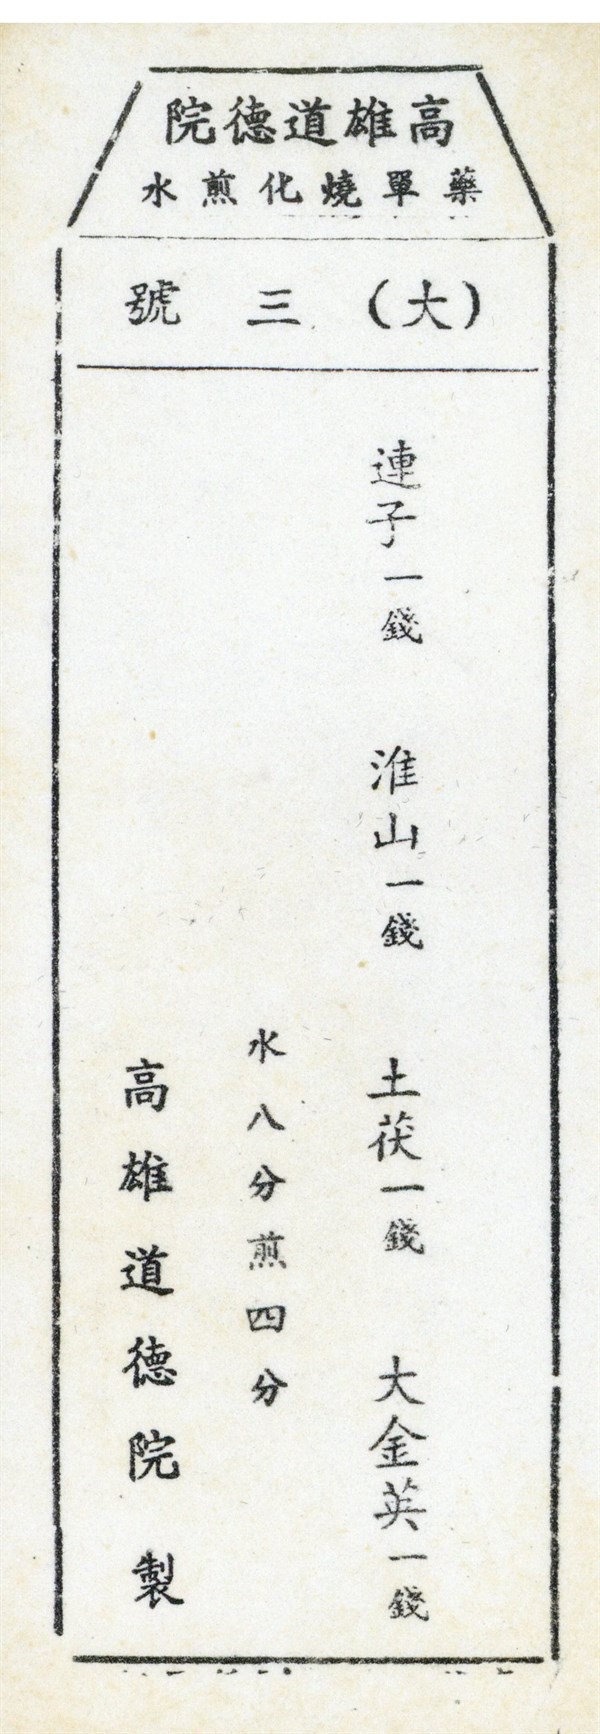 高雄道德院
藥單燒化煎水
(大)三號
連子一錢 淮山一錢 土茯一錢 大金英一錢
水八分煎四分
高雄道德院製